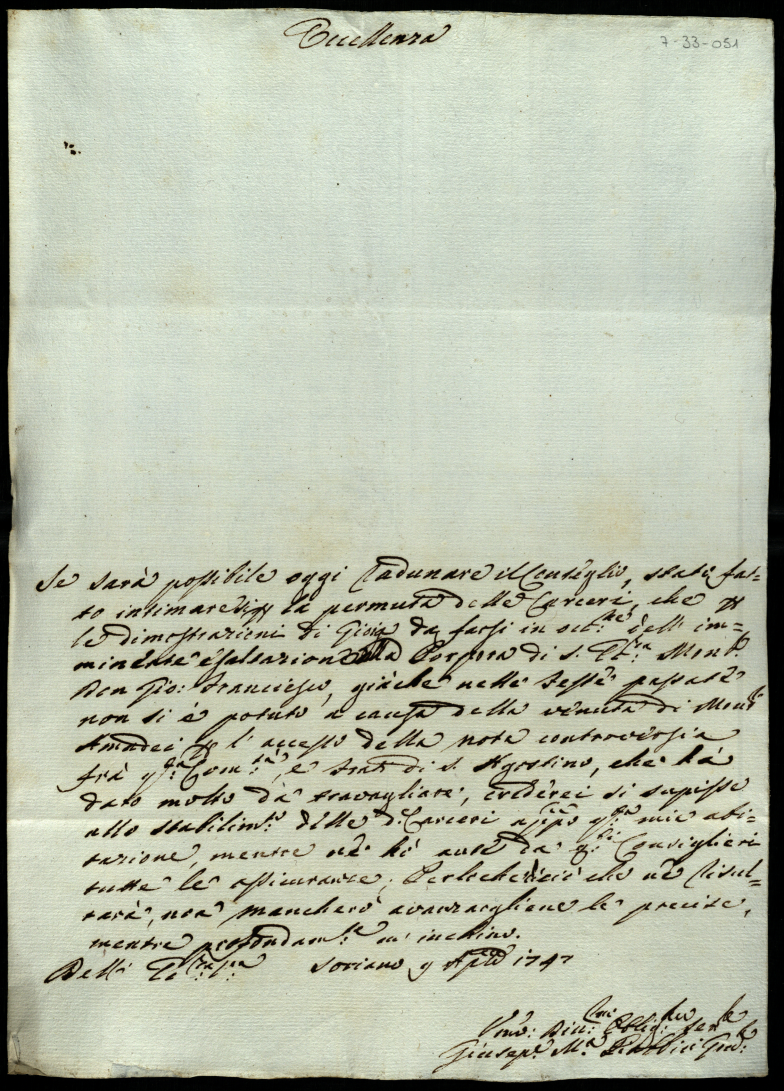 Eccellenza
7-33-051
Se sarà possibile oggi radunare il Conseglio, stato fat=
to intimare sì per la permuta delle Carceri, che per
le dimostrazioni di Gioia da farsi in occ.ne dell' im=
minente esaltazione alla Porpora di S. Ecc.za Mons.r
Don Gio: Francesco, giàche nelle feste passate
non si è potuto a causa della venuta di Mons.r
Amadei per l'accesso della nota controversia
frà q.sta Com.tà, e Frati di S. Agostino, che hà
dato molto dà travagliare, crederei si supisse
allo stabilim.to delle d.e Carceri app.o q.sta mia abi=
tazione, mentre nè hò aute da q.sti Consiglieri
tutte le assicuranze; Perloche di ciò che nè risul=
tarà, non mancherò avanzargliene le precise,
mentre profondam.te m' inchino.
Dell' Ecc.za V.ra Soriano 9 Aprile 1747
Umo: Div.mo Oblig.mo Ser.re
Giusep.e M.a Gov.re